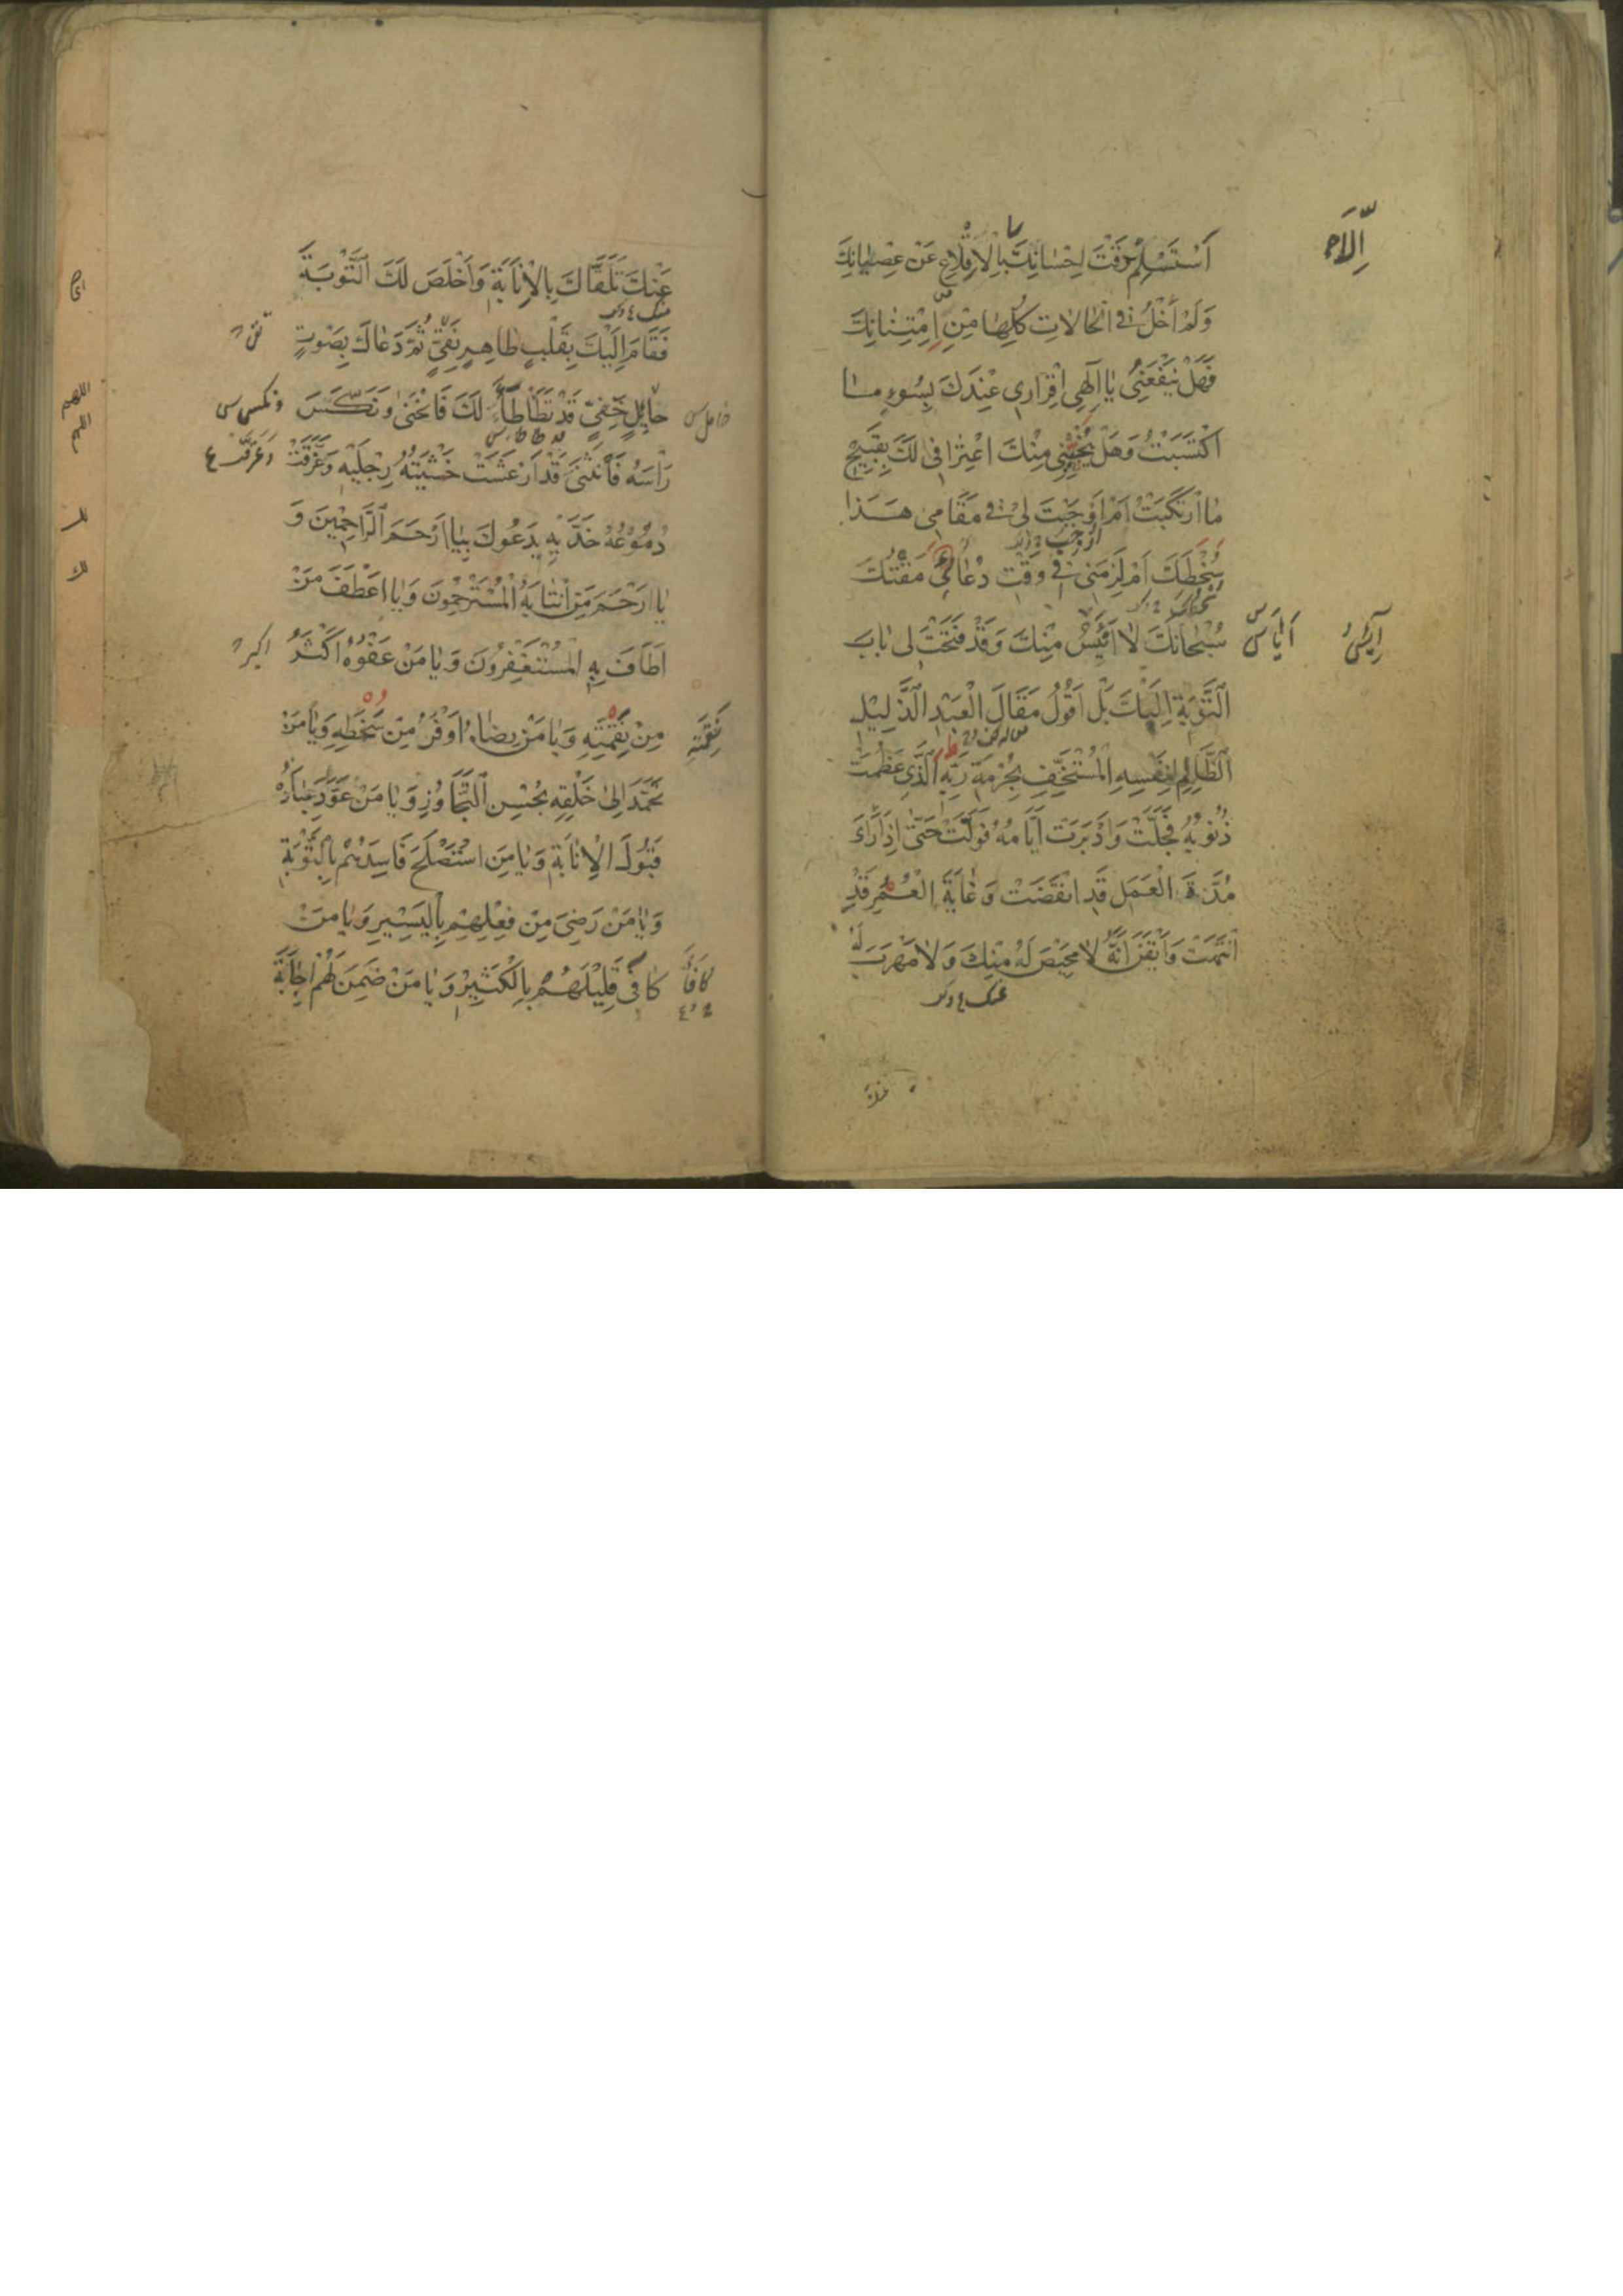 أَسْتَسْلِمْ وَقْتَ اِحْسَانِكَ بِالْاِقْلَاعِ عَنْ عِصْيَانِكَ
اِلَّا
وَلَمْ أَخْلُ فِي الْحَالَاتِ كُلِّهَا مِنِ امْتِنَانِكَ
فَهَلْ يَنْفَعُنِي يَا اِلَهِي اِقْرَارِي عِنْدَكَ بِسُوءِ مَا
اكْتَسَبْتُ وَهَلْ يُنْجِينِي مِنْكَ اعْتِرَافِي لَكَ بِقَبِيحِ
مَا ارْتَكَبْتُ اَمْ اَوْجَبْتَ لِي فِي مَقَامِي هَذَا
سُخْطَكَ اَمْ لَزِمَنِي فِي وَقْتِ دُعَائِي مَقْتُكَ
سُبْحَانَكَ لَا اَيْئَسُ مِنْكَ وَقَدْ فَتَحْتَ لِي بَابَ
التَّوْبَةِ اِلَيْكَ بَلْ اَقُولُ مَقَالَ الْعَبْدِ الذَّلِيلِ
الظَّالِمِ لِنَفْسِهِ الْمُسْتَخِفِّ بِحُرْمَةِ رَبِّهِ الَّذِي عَظُمَتْ
ذُنُوبُهُ فَجَلَّتْ وَاَدْبَرَتْ اَيَّامُهُ فَوَلَّتْ حَتَّى اِذَا رَاَى
مُدَّةَ الْعَمَلِ قَدِ انْقَضَتْ وَغَايَةَ الْعُمُرِ قَدِ
انْتَهَتْ وَاَيْقَنَ اَنَّهُ لَا مَحِيصَ لَهُ مِنْكَ وَلَا مَهْرَبَ لَهُ
عَنْكَ تَلَقَّاكَ بِالْاِنَابَةِ وَاَخْلَصَ لَكَ التَّوْبَةَ
فَقَامَ اِلَيْكَ بِقَلْبٍ طَاهِرٍ نَقِيٍّ ثُمَّ دَعَاكَ بِصَوْتٍ
حَائِلٍ خَفِيٍّ قَدْ تَطَأْطَأَ لَكَ فَانْحَنَى وَنَكَّسَ
رَأْسَهُ فَانْثَنَى قَدْ اَرْعَشَتْ خَشْيَتُهُ رِجْلَيْهِ وَغَرَّقَتْ
دُمُوعُهُ خَدَّيْهِ يَدْعُوكَ بِيَا اَرْحَمَ الرَّاحِمِينَ وَ
يَا اَرْحَمَ مَنِ انْتَابَهُ الْمُسْتَرْحِمُونَ وَيَا اَعْطَفَ مَنْ
اَطَافَ بِهِ الْمُسْتَغْفِرُونَ وَيَا مَنْ عَفْوُهُ اَكْثَرُ
مِنْ نَقِمَتِهِ وَيَا مَنْ رِضَاهُ اَوْفَرُ مِنْ سَخَطِهِ وَيَا مَنْ
نَقِمَتِهِ
تَحَمَّدَ اِلَى خَلْقِهِ بِحُسْنِ التَّجَاوُزِ وَيَا مَنْ عَوَّدَ عِبَادَهُ
قَبُولَ الْاِنَابَةِ وَيَا مَنِ اسْتَصْلَحَ فَاسِدَهُمْ بِالتَّوْبَةِ
وَيَا مَنْ رَضِيَ مِنْ فِعْلِهِمْ بِالْيَسِيرِ وَيَا مَنْ
كَافَى قَلِيلَهُمْ بِالْكَثِيرِ وَيَا مَنْ ضَمِنَ لَهُمْ اِجَابَةَ
كَافَأَ